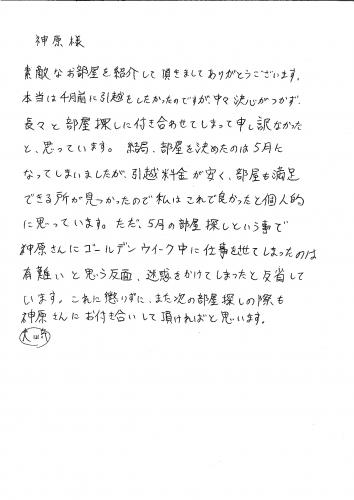 神原様
素敵なお部屋を紹介して頂きましてありがとうございます。
本当は4月前に引越をしたかったのですが、中々決心がつかず、
長々と部屋探しに付き合わせてしまって申し訳なかった
と、思っています。結局、部屋を決めたのは5月に
なってしまいましたが、引越料金が安く、部屋も満足
できる所が見つかったので私はこれで良かったと個人的
に思っています。ただ、5月の部屋探しという事で
神原さんにゴールデンウイーク中に仕事をせてしまったのは
有難いと思う反面、迷惑をかけてしまったと反省して
います。これに懲りずに、また次の部屋探しの際も
神原さんにお付き合いして頂ければと思います。